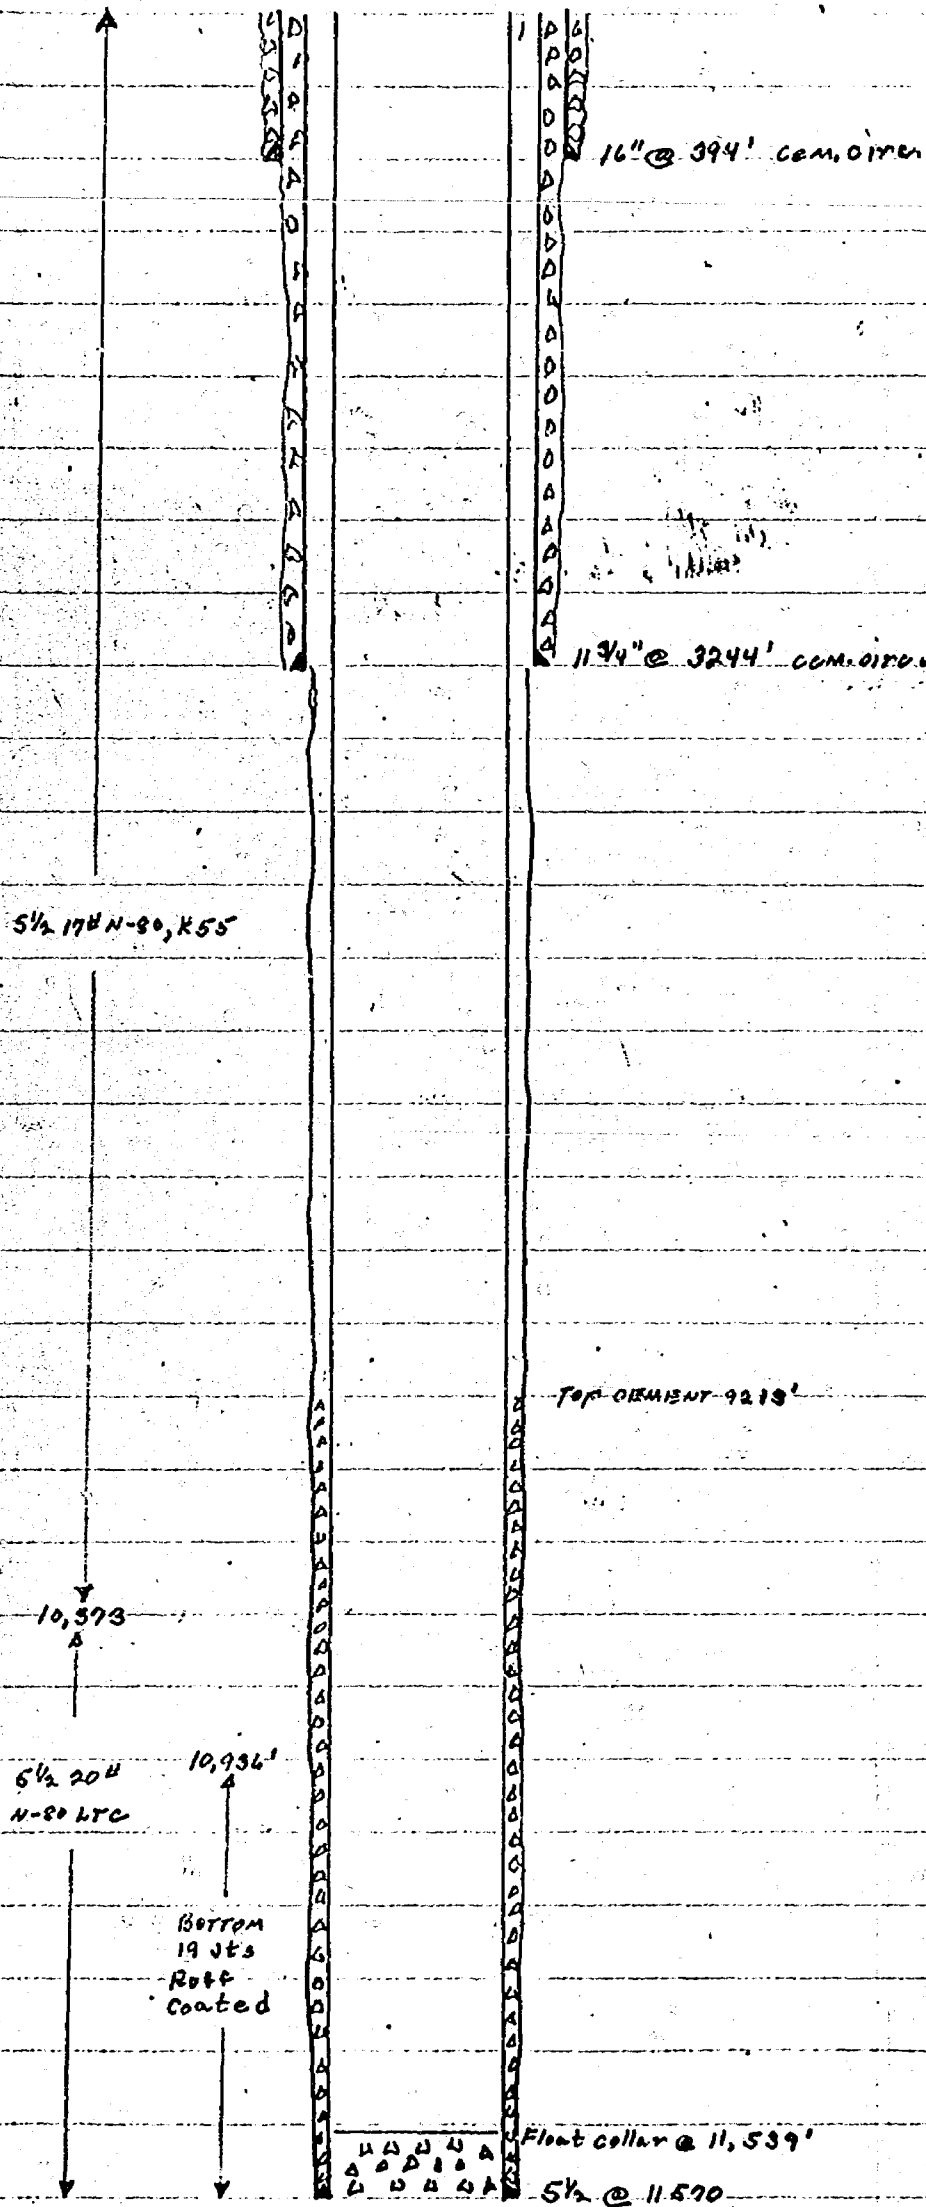 16" @ 394' cem. circ
11 3/4" @ 3244' cem. circ.
5 1/2 17# N-80, K55
TOP CEMENT 9213'
10,373
5 1/2 20#
N-80 LTC
10,936'
BOTTOM
19 Jts
Ruff
Coated
Float collar @ 11,539'
5 1/2 @ 11570